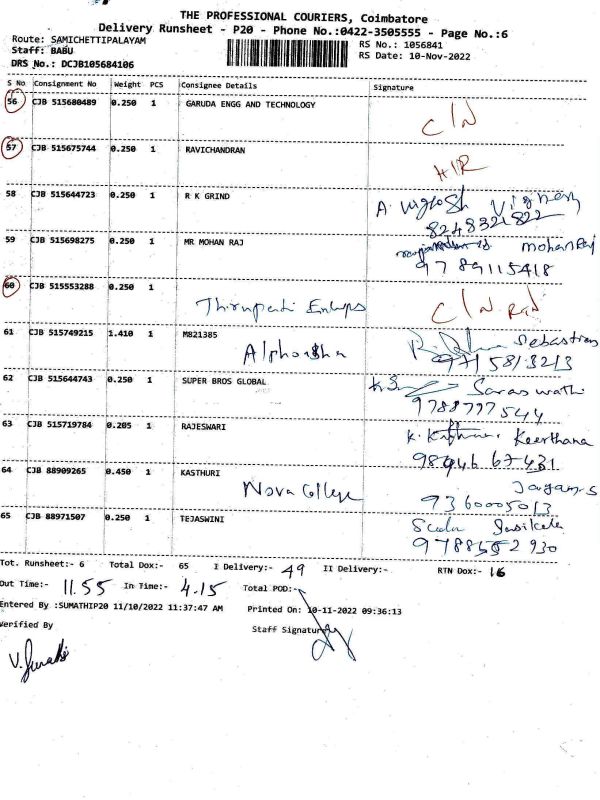 THE PROFESSIONAL COURIERS, Coimbatore
Delivery Runsheet - P20 - Phone No.:0422-3505555 - Page No.:6
Route: SAMICHETTIPALAYAM
Staff: BABU
DRS No.: DCJB105684106
RS No.: 1056841
RS Date: 10-Nov-2022
S No Consignment No Weight PCS Consignee Details Signature
56 CJB 515680489 0.250 1 GARUDA ENGG AND TECHNOLOGY
C/N
57 CJB 515675744 0.250 1 RAVICHANDRAN
58 CJB 515644723 0.250 1 R K GRIND
A. Vignesh
8248321822
59 CJB 515698275 0.250 1 MR MOHAN RAJ
mohanRaj
9789115418
60 CJB 515553288 0.250 1
C/N
61 CJB 515749215 1.410 1 M821385
Sebastian
9715813213
62 CJB 515644743 0.250 1 SUPER BROS GLOBAL
Saraswathi
9788797544
63 CJB 515719784 0.205 1 RAJESWARI
Keerthana
64 CJB 88909265 0.450 1 KASTHURI
Nova College
9360005013
65 CJB 88971507 0.250 1 TEJASWINI
9788552930
Tot. Runsheet:- 6 Total Dox:- 65 I Delivery:- 49 II Delivery:- RTN Dox:- 16
Out Time:- 11.55 In Time:- 4.15 Total POD:-
Entered By :SUMATHIP20 11/10/2022 11:37:47 AM Printed On: 10-11-2022 09:36:13
Verified By Staff Signature